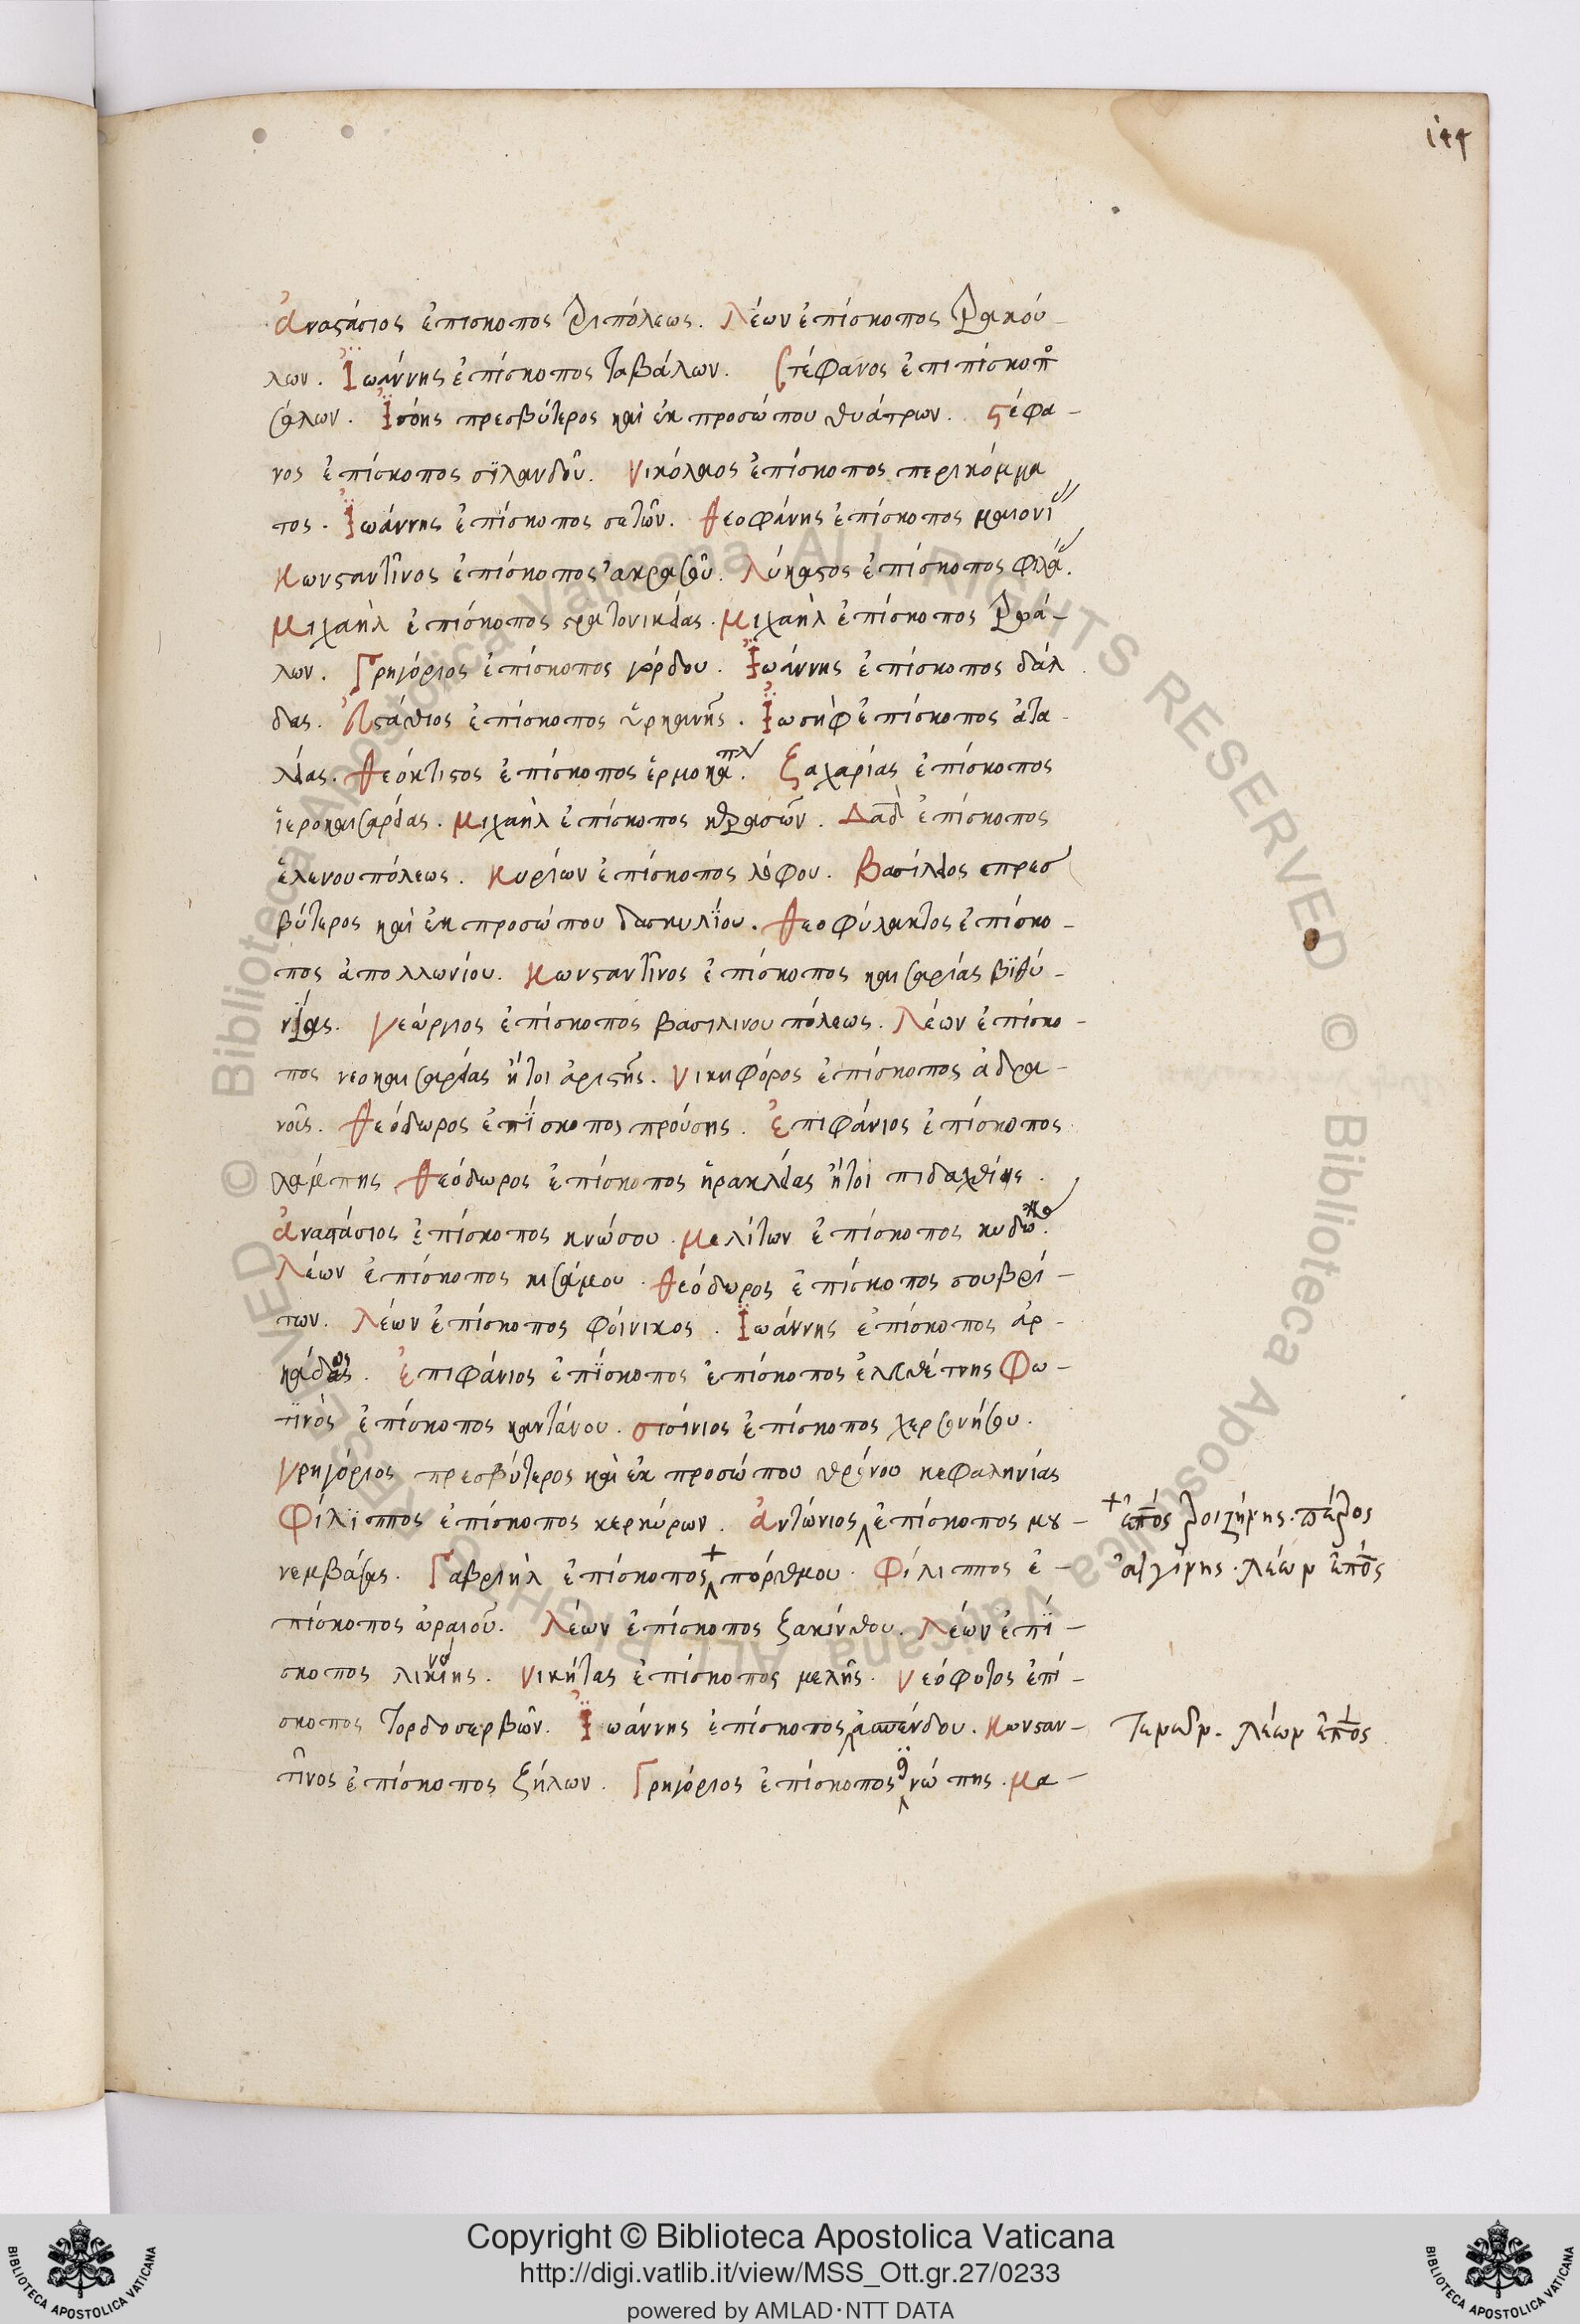 144
ἀναστάσιος ἐπίσκοπος τριπόλεως. Λέων ἐπίσκοπος τρακού-
λων. Ἰωάννης ἐπίσκοπος ταβάλων. Στέφανος ἐπιπίσκοπο
σάλων. πρεσβύτερος καὶ ἐκ προσώπου θυάτρων. στέφα-
νος ἐπίσκοπος σϊλανδοῦ. Νικόλαος ἐπίσκοπος περικόμμα
τος. Ἰωάννης ἐπίσκοπος σετῶν. Θεοφάνης ἐπίσκοπος μαιονί
Κωνσταντῖνος ἐπίσκοπος ἀκρασοῦ. Λύκαστος ἐπίσκοπος φιλά.
Μιχαὴλ ἐπίσκοπος στρατονικείας. Μιχαὴλ ἐπίσκοπος τρά-
λων. Γρηγόριος ἐπίσκοπος γόρδου. Ἰωάννης ἐπίσκοπος δάλ
δας. Εὐστάθιος ἐπίσκοπος ὑρκανῆς. Ἰωσὴφ ἐπίσκοπος ἀτα-
λείας. Θεόκτιστος ἐπίσκοπος ἑρμοκαπλ. Ζαχαρίας ἐπίσκοπος
ἱεροκαισαρείας. Μιχαὴλ ἐπίσκοπος Δαδ ἐπίσκοπος
ἑλενουπόλεως. Κυρίων ἐπίσκοπος λόφου. Βασίλειος πρεσ
βύτερος καὶ ἐκ προσώπου δασκυλίου. Θεοφύλακτος ἐπίσκο-
πος ἀπολλωνίου. Κωνσταντῖνος ἐπίσκοπος καισαρίας βϊθυ-
νίας. Γεώργιος ἐπίσκοπος βασιλινουπόλεως. Λέων ἐπίσκο-
πος νεοκαισαρείας ἤτοι ἀριστῆς. Νικηφόρος ἐπίσκοπος ἀδρα-
νοῖς. Θεόδωρος ἐπίσκοπος προύσης. Ἐπιφάνιος ἐπίσκοπος
λάμπης Θεόδωρος ἐπίσκοπος ἡρακλείας ἤτοι
Ἀναστάσιος ἐπίσκοπος κνώσου. Μελίτων ἐπίσκοπος κυδω.
Λέων ἐπίσκοπος κισάμου. Θεόδωρος ἐπίσκοπος σουβρί-
των. Λέων ἐπίσκοπος φοίνικος. Ἰωάννης ἐπίσκοπος ἀρ-
κάδος. Ἐπιφάνιος ἐπίσκοπος ἐπίσκοπος ἐλευθέρνης Φω-
τινὸς ἐπίσκοπος καντάνου. σισίνιος ἐπίσκοπος χερσονήσου.
Γρηγόριος πρεσβύτερος καὶ ἐκ προσώπου θρόνου κεφαληνίας
Φίλϊππος ἐπίσκοπος κερκύρων. Ἀντώνιος ἐπίσκοπος μο-
νεμβάσας. Γαβριὴλ ἐπίσκοπος πόρθμου. Φίλιππος ἐ-
πίσκοπος ὠραιοῦ. Λέων ἐπίσκοπος ζακύνθου. Λέων ἐπί-
σκοπος λικίνης. Νικήτας ἐπίσκοπος μελῆς. Νεόφυτος ἐπί-
σκοπος γορδοσερβῶν. Ἰωάννης ἐπίσκοπος Κωνσταν-
τῖνος ἐπίσκοπος ζήλων. Γρηγόριος ἐπίσκοπος σινώπης. Μα-
+ ἐπος τροιζήνης. πέτρος
αἰγίνης. λέων ἐπος
λέων ἐπος
© Biblioteca Apostolica Vaticana ALL RIGHTS RESERVED © Biblioteca Apostolica Vaticana ALL RIGHTS RESERVED
BIBLIOTECA APOSTOLICA VATICANA
Copyright © Biblioteca Apostolica Vaticana
http://digi.vatlib.it/view/MSS_Ott.gr.27/0233
powered by AMLAD·NTT DATA
BIBLIOTECA APOSTOLICA VATICANA